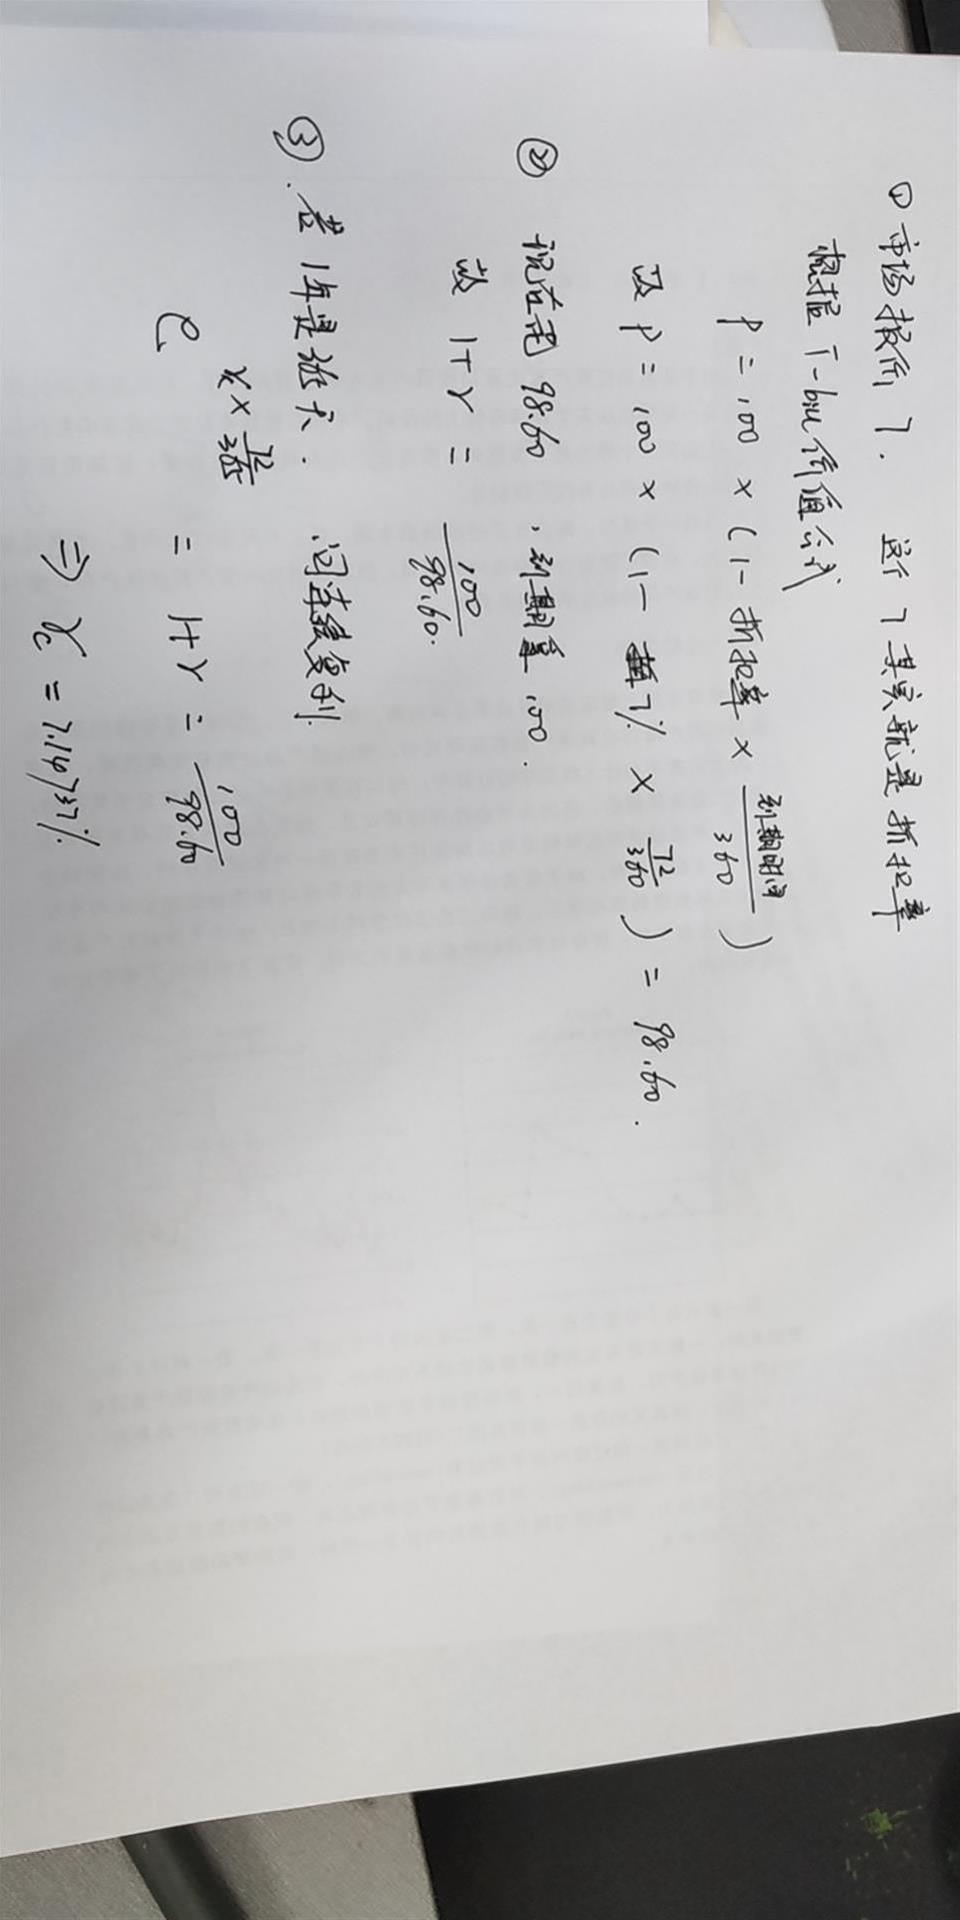 ① 市场报价 7. 这个 7 其实就是 折扣率
根据 T-bill 价值公式
P = 100 × (1 - 折扣率 × 到期时间/360)
故 P = 100 × (1 - 7% × 72/360) = 98.60.
② 现在花 98.60. 到期拿 100.
故 1+r = 100/98.60.
③. 若 1年是 365天. 问连续复利.
e^(r×72/365) = 1+r = 100/98.60
⇒ rc = 7.14737%